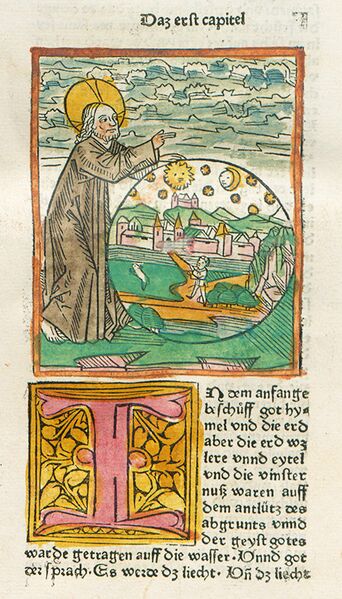 Daz erst capitel
IN dem anfange
beschüff got hy⸗
mel vnd die erd
aber die erd wz
lere vnnd eytel
vnd die vinster
nuß waren auff
dem antlütz des
abgrunts vnnd
der geyst gotes
warde getragen auff die wasser. Vnnd got
der sprach. Es werde dz liecht. Vñ dz liecht